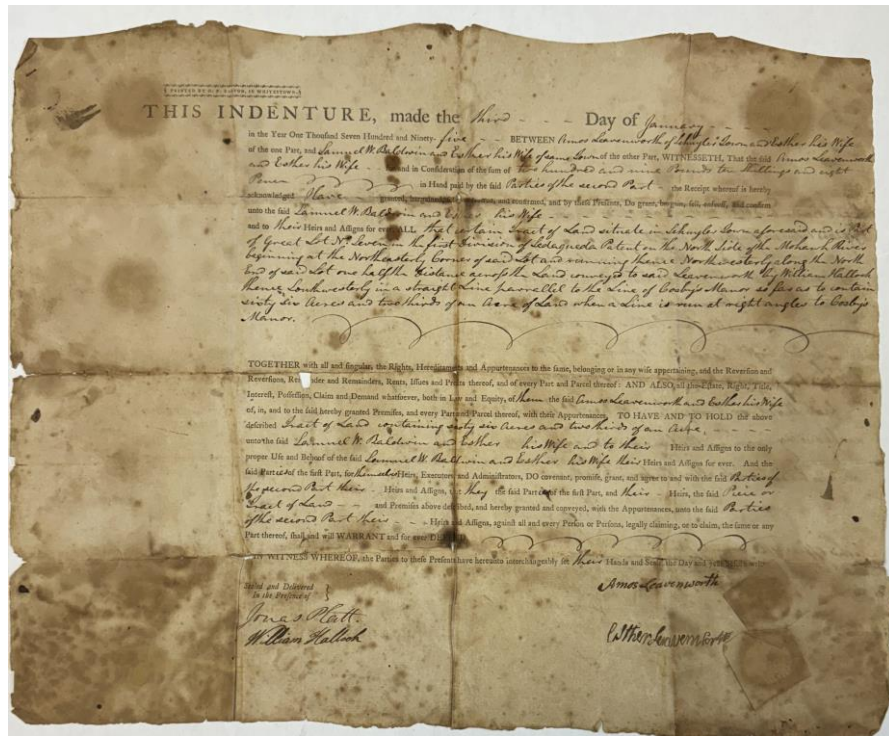 PRINTED BY O. P. EASTON, IN WHITESTOWN.
THIS INDENTURE, made the third Day of January
in the Year One Thousand Seven Hundred and Ninety-five BETWEEN Amos Leavenworth of Schuyler Town and Esther his Wife
of the one Part, and Samuel W. Baldwin and Esther his Wife of same Town of the other Part, WITNESSETH, That the said Amos Leavenworth
and Esther his Wife and in Consideration of the sum of two hundred and nine Pounds ten Shillings and eight
Pence in Hand paid by the said Parties of the second Part the Receipt whereof is hereby
acknowledged Have granted, bargained, and confirmed, and by these Presents, Do grant, bargain, sell, enfeoff, and confirm
unto the said Samuel W. Baldwin and his Wife
and to their Heirs and Assigns for ever ALL that certain Tract of Land situate in Schuyler Town aforesaid and is Part
of Great Lot No. Seven in the first Division of Sedaqueda Patent on the North Side of the Mohawk River
beginning at the Northeasterly Corner of said Lot and running thence Northwesterly along the North
End of said Lot one half the distance across the Land conveyed to said Leavenworth by William Hallock
thence Southwesterly in a straight Line parrellel to the Line of Cosby's Manor so far as to contain
sixty six Acres and two thirds of an Acre of Land when a Line is run at right angles to Cosby's
Manor.
TOGETHER with all and singular, the Rights, Hereditaments and Appurtenances to the same, belonging or in any wise appertaining, and the Reversion and
Reversions, Remainder and Remainders, Rents, Issues and Profits thereof, and of every Part and Parcel thereof: AND ALSO, all the Estate, Right, Title,
Interest, Possession, Claim and Demand whatsoever, both in Law and Equity, of them the said Amos Leavenworth and Esther his Wife
of, in, and to the said hereby granted Premises, and every Part and Parcel thereof, with their Appurtenances, TO HAVE AND TO HOLD the above
described Tract of Land containing sixty six Acres and two thirds of an Acre,
unto the said Samuel W. Baldwin and Esther his Wife and to their Heirs and Assigns to the only
proper Use and Behoof of the said Samuel W. Baldwin and Esther his Wife theis Heirs and Assigns for ever. And the
said Parties of the first Part, for Heirs, Executors and Administrators, DO covenant, promise, grant, and agree to and with the said Parties of
the second Part theis Heirs and Assigns, they the said Parties of the first Part, and theis Heirs, the said Piece or
Tract of Land and Premises above described, and hereby granted and conveyed, with the Appurtenances, unto the said Parties
of the second Part theis Heirs and Assigns, against all and every Person or Persons, legally claiming, or to claim, the same or any
Part thereof, shall and will WARRANT and for ever
IN WITNESS WHEREOF, the Parties to these Presents have hereunto interchangeably set theis Hands and Seals the Day and
Sealed and Delivered
in the Presence of
Amos Leavenworth
Jonas Platt.
William Hallock
Esther Leavenworth